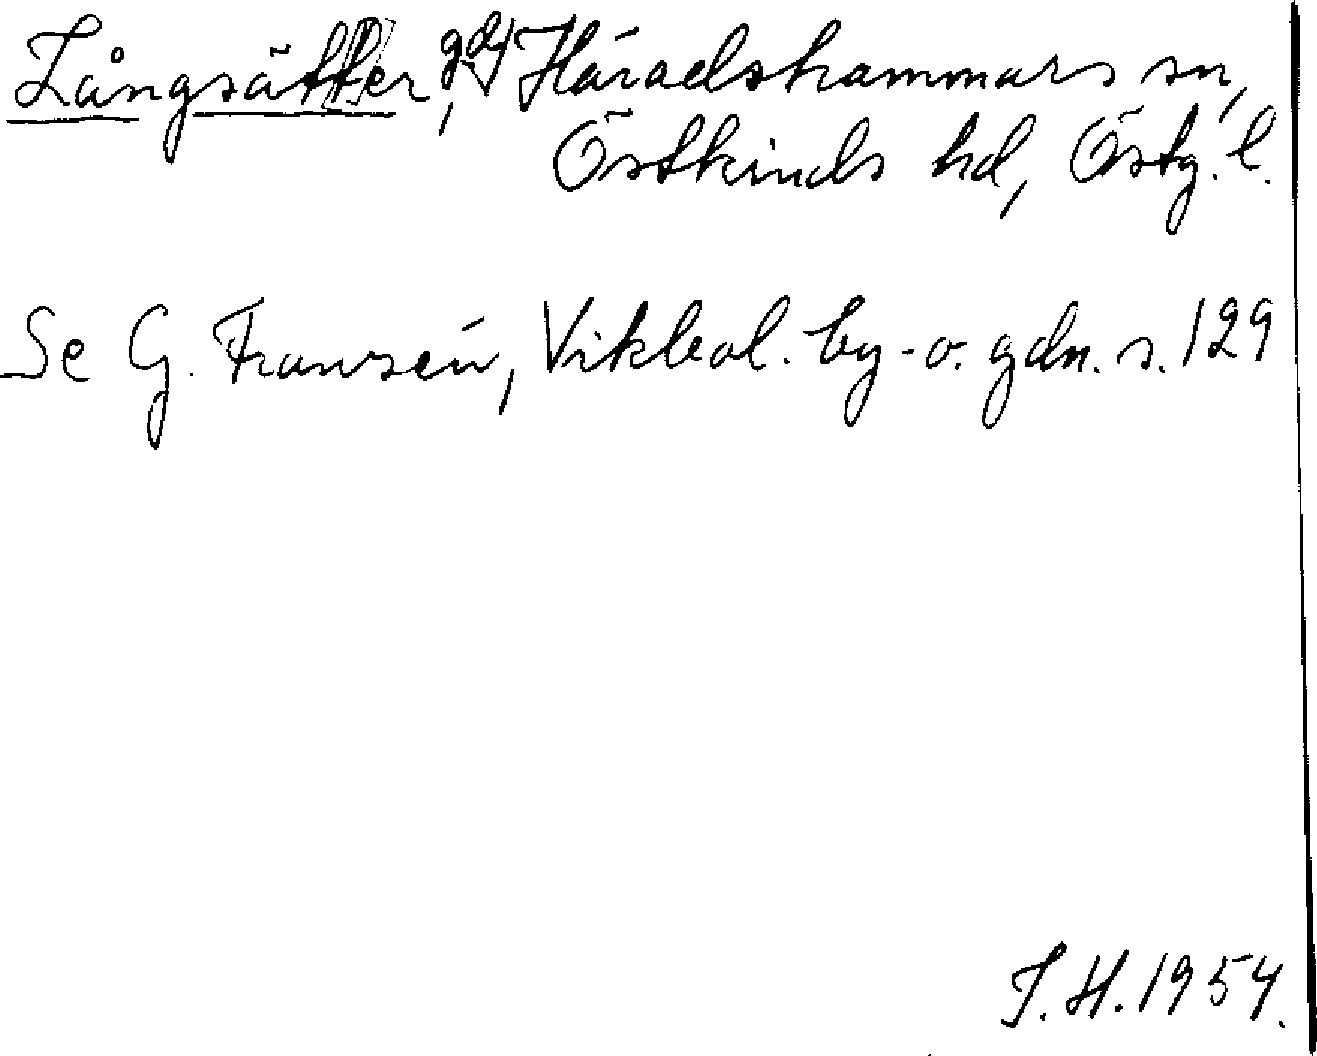 Långsätter, gd, Häradshammars sn,
Östkinds hd, Östg. l.
Se G. Franzén, Vikbol. by- o. gdn. s. 129
J. H. 1954.